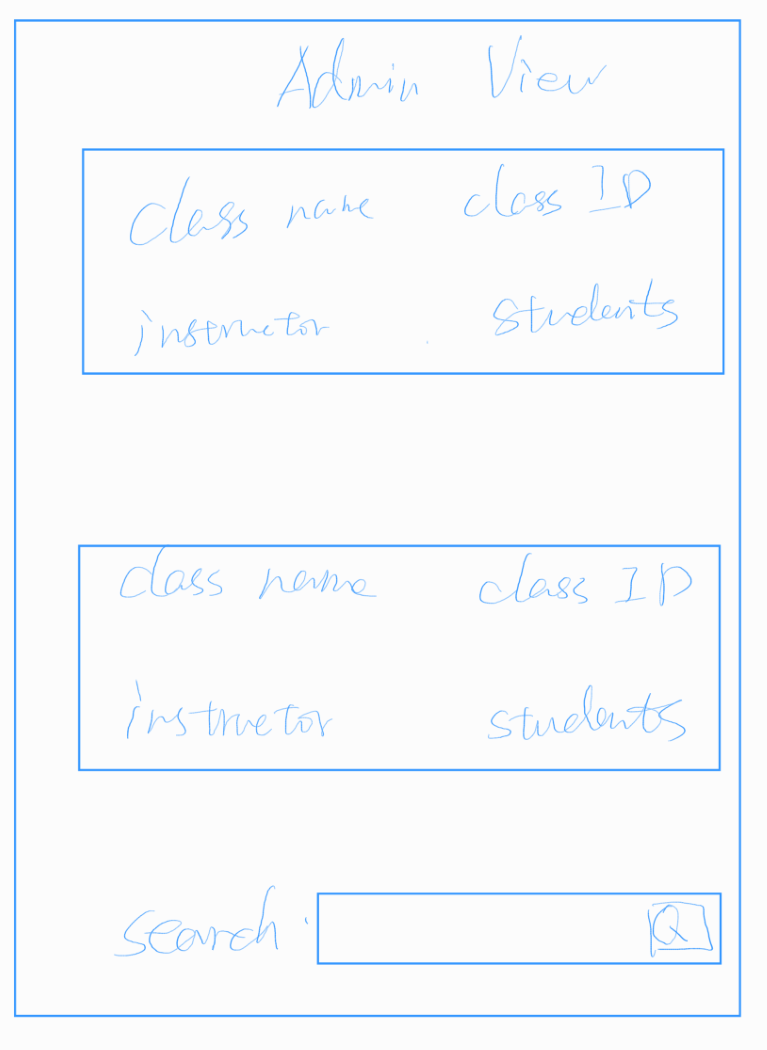 Admin View
Class name class ID
instructor students
class name class ID
instructor students
search :